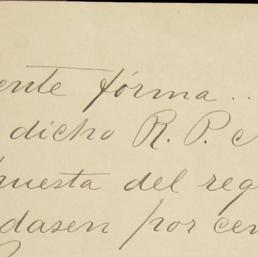 ente fórma..
dicho R. P. c
uesta del req
dasen por cen